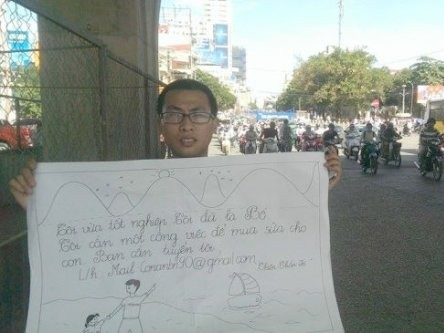 Tôi vừa tốt nghiệp Tôi đã là Bố
Tôi cần một công việc để mua sữa cho
con Bạn cần tuyển tôi
L/h Mail @gmail.com